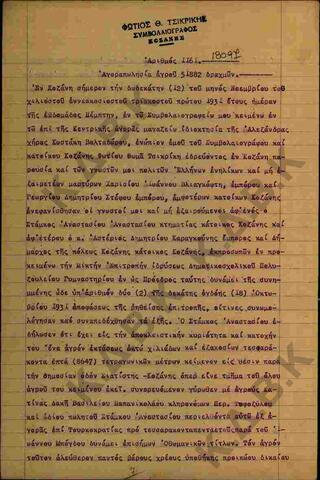 ΦΩΤΙΟΣ Θ. ΤΣΙΚΡΙΚΗΣ
ΣΥΜΒΟΛΑΙΟΓΡΑΦΟΣ
ΚΟΖΑΝΗΣ
Ἀριθμός 1161. 18097
Ἀγοραπωλησία ἀγροῦ 51882 δραχμῶν.
Ἐν Κοζάνῃ σήμερον τήν δωδεκάτην (12) τοῦ μηνός Νοεμβρίου τοῦ
χιλιοστοῦ ἐννεακοσιοστοῦ τριακοστοῦ πρώτου 1931 ἔτους ἡμέραν
τῆς ἑβδομάδος Πέμπτην, ἐν τῷ Συμβολαιογραφείῳ μου κειμένῳ ἐν
τῷ ἐπί τῆς Κεντρικῆς ἀγορᾶς μαγαζείῳ ἰδιοκτησίᾳ τῆς Ἀλεξάνδρας
χήρας Κωστάκη Βαλταδώρου, ἐνώπιον ἐμοῦ τοῦ Συμβολαιογράφου καί
κατοίκου Κοζάνης Φωτίου Θωμᾶ Τσικρίκη ἑδρεύοντος ἐν Κοζάνῃ
παρουσίᾳ καί τῶν γνωστῶν μοι πολιτῶν Ἑλλήνων ἐνηλίκων καί μή
ἐξαιρετέων μαρτύρων Χαρισίου Ἰωάννου Βλιαγκόφτη, ἐμπόρου καί
Γεωργίου Δημητρίου Στέφου ἐμπόρου, ἀμφοτέρων κατοίκων Κοζάνης
ἐνεφανίσθησαν οἱ γνωστοί μοι καί μή ἐξαιρούμενοι ἀφ'ἑνός ὁ
Στάμκος Ἀναστασίου Ἀναστασίου κτηματίας κάτοικος Κοζάνης καί
ἀφ'ἑτέρου ὁ κ. Ἀστέριος Δημητρίου Καραγκούνης ἔμπορος καί Δήμαρ-
χος τῆς πόλεως Κοζάνης κάτοικος Κοζάνης, ἐκπροσωπῶν ἐν
προκειμένῳ τήν Μικτήν Ἐπιτροπήν ἱδρύσεως Δημοσικοσχολικοῦ
Γυμναστηρίου ἐν ὡς Πρόεδρος ταύτης δυνάμει τῆς συν-
ημμένης ὧδε ὑπ'ἀριθμόν δύο (2) τῆς δεκάτης ὀγδόης (18) Ὀκτω-
βρίου 1931 ἀποφάσεως τῆς ῥηθείσης ἐπιτροπῆς, οἵτινες συνωμο-
λόγησαν καί συναπεδέχθησαν τά ἑξῆς. Ὁ Στάμκος Ἀναστασίου ἐ-
δήλωσεν ὅτι ἔχει εἰς τήν ἀποκλειστικήν κυριότητα καί κατοχήν
του ἕνα ἀγρόν ἐκτάσεως ὀκτώ χιλιάδων καί ἑξακοσίων τεσσαρά-
κοντα ἑπτά (8647) τετραγωνικῶν μέτρων κείμενον εἰς θέσιν παρά
τήν δημοσίαν ὁδόν Σιατίστης-Κοζάνης ὅπερ εἶνε τμῆμα τοῦ ὅλου
ἀγροῦ του κειμένου ἐκεῖ, συνορευόμενον γύρωθεν μέ ἀγρούς
Δάκη Βασιλείου Παπανικολάου κληρονόμων Περ. Τσοτζούλου
καί ἰδίου πωλητοῦ Στάμκου Ἀναστασίου περιελθόντα αὐτῷ ἐξ ἀ-
γορᾶς ἐπί Τουρκοκρατίας πρό τεσσαρακονταπενταετίας παρά τοῦ
Ἰωάννου Μπόγδου δυνάμει ἐπισήμων Ὀθωμανικῶν τίτλων. Τόν ἀγρόν
τοῦτον ἐλεύθερον παντός βάρους χρέους ὑποθήκης προικώου δικαίου